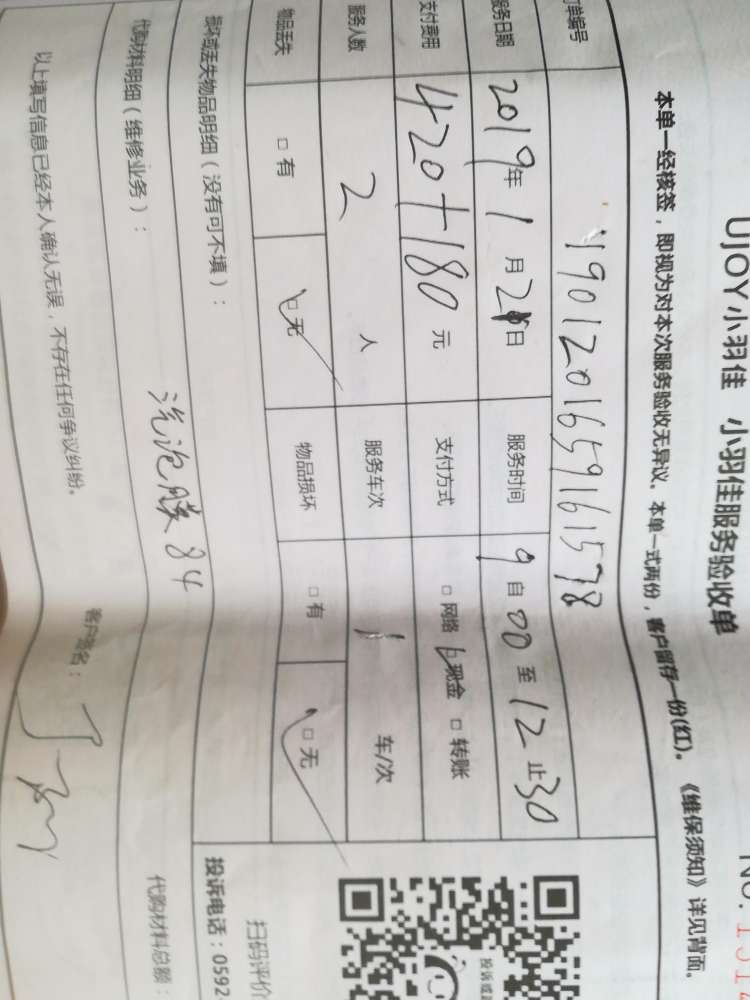 UJOY小羽佳 小羽佳服务验收单
NO.
本单一经核签，即视为对本次服务验收无异议。本单一式两份，客户留存一份(红)。《维保须知》详见背面。
订单编号 1190120165916 1578
服务日期 2019年1月21日 服务时间 9自00至12止30
支付费用 420+180元 支付方式 □网络 □现金 □转账
服务人数 2人 服务车次 1车/次
物品丢失 □有 □无 物品损坏 □有 □无
损坏或丢失物品明细（没有可不填）：
投诉电话：0592
扫码评价
代购材料明细（维修业务）： 泡膜 84
代购材料总额：
以上填写信息已经本人确认无误，不存在任何争议纠纷。 客户签名：